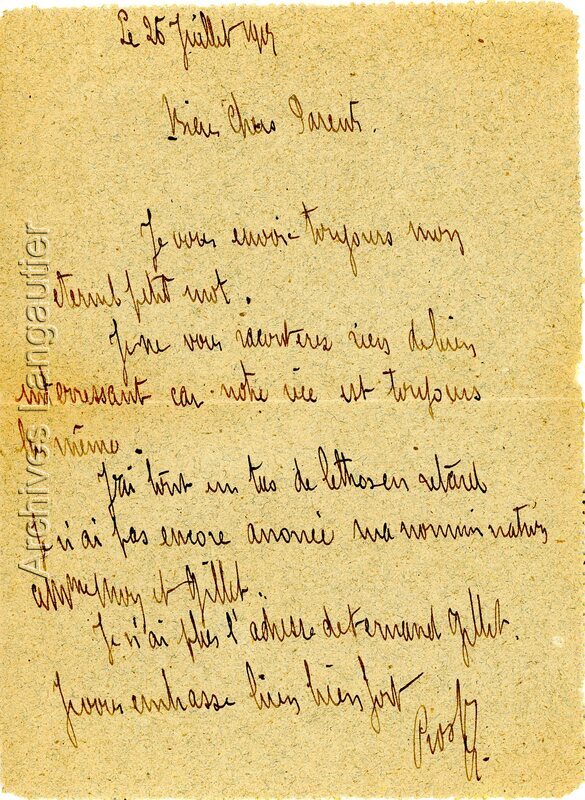 Le 26 Juillet 1915
Biens Chers Parents.
Je vous envoie toujours mon
eternel petit mot.
Je ne vous raconterez rien de bien
interressant car notre vie est toujours
la même.
J'ai tout un tas de lettres en retard
Je n'ai pas encore anoncé ma nomminnation
et Gillet.
Je n'ai plus l'adresse de Fernand Gillet.
Je vous embrasse bien bien fort
Archives Langautier